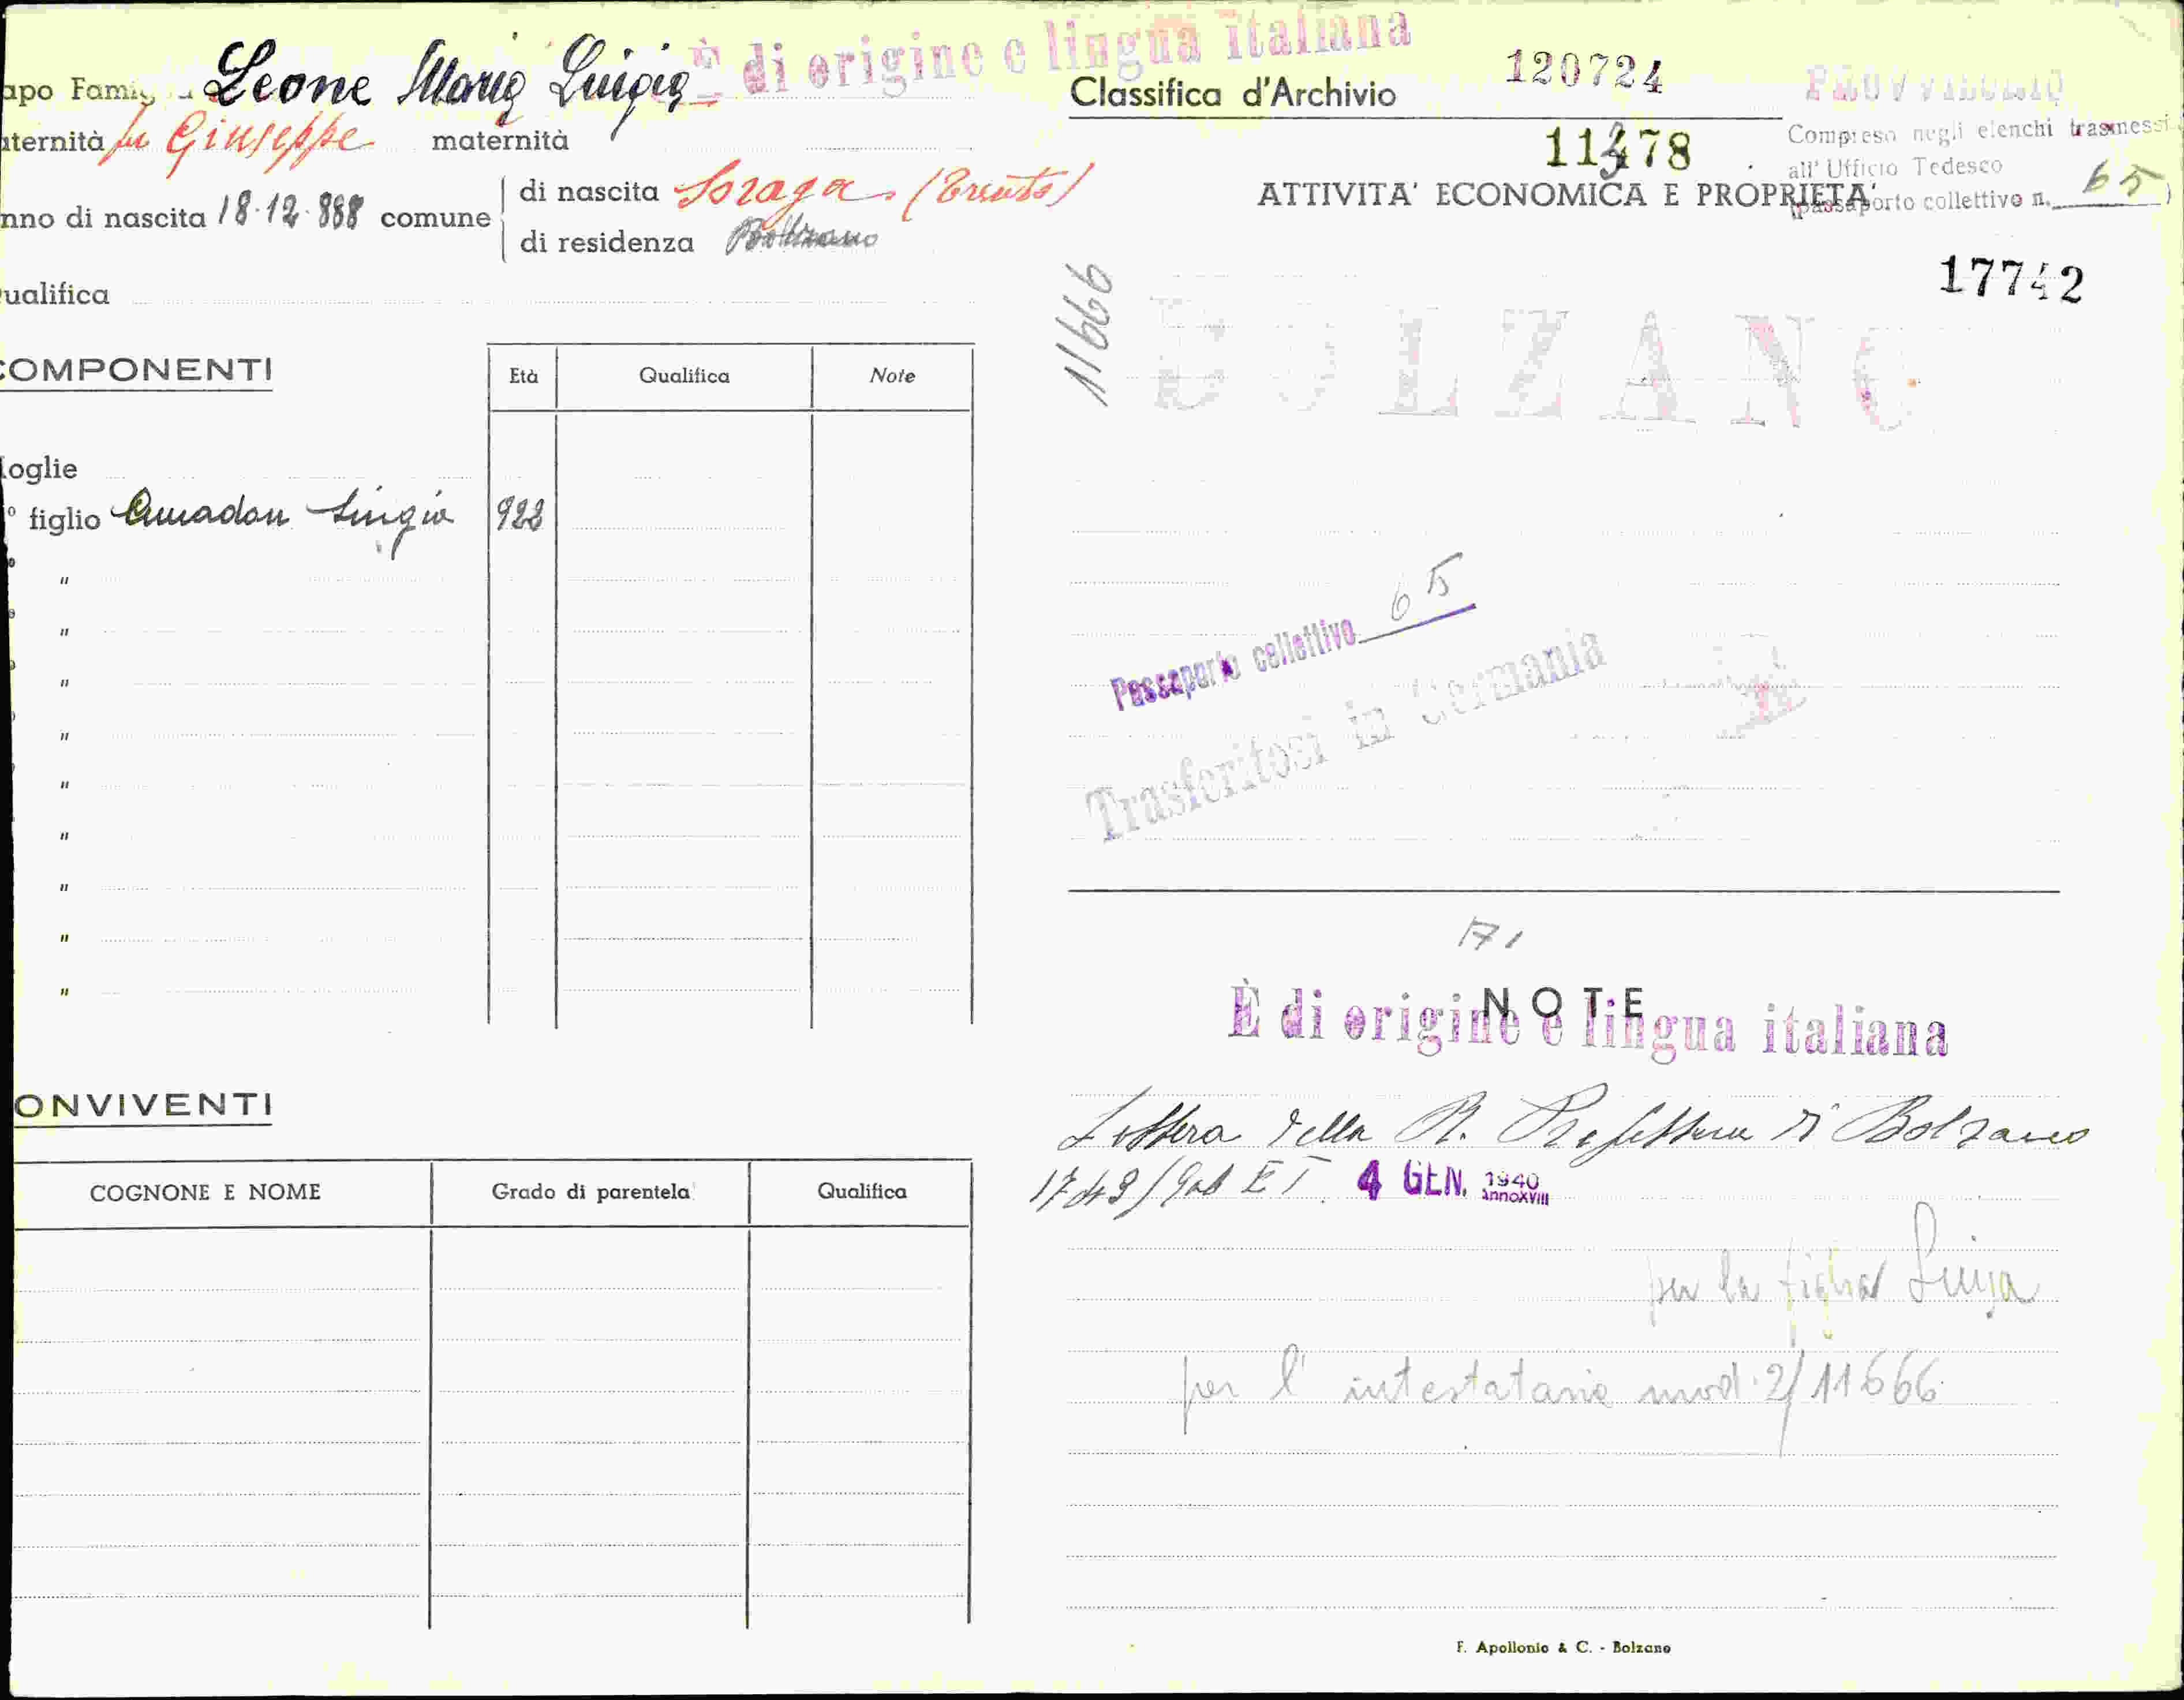 È di origine e lingua italiana
apo Fami Leone Maria Luigia
aternità fu Giuseppe maternità
nno di nascita 18·12·888 comune
di nascita Soraga (Trento)
di residenza Bolzano
ualifica
COMPONENTI
Età Qualifica Note
oglie
° figlio Amadou Luigia 922
"
"
"
"
"
"
"
"
"
ONVIVENTI
COGNONE E NOME Grado di parentela Qualifica
Classifica d'Archivio 120724
11478
Compreso negli elenchi trasmessi
all' Ufficio Tedesco
(passaporto collettivo n. 65)
ATTIVITA' ECONOMICA E PROPRIETA'
17742
11666
BOLZANO
Passaporto collettivo 65
Trasferitosi in Germania
171
NOTE
È di origine e lingua italiana
Lettera della R. Prefettura di Bolzano
1749/Gab E T. 4 GEN. 1940
Anno XVIII
per la figlia Luigia
per l' intestataria mod. 2/11666
F. Apollonio & C. - Bolzano